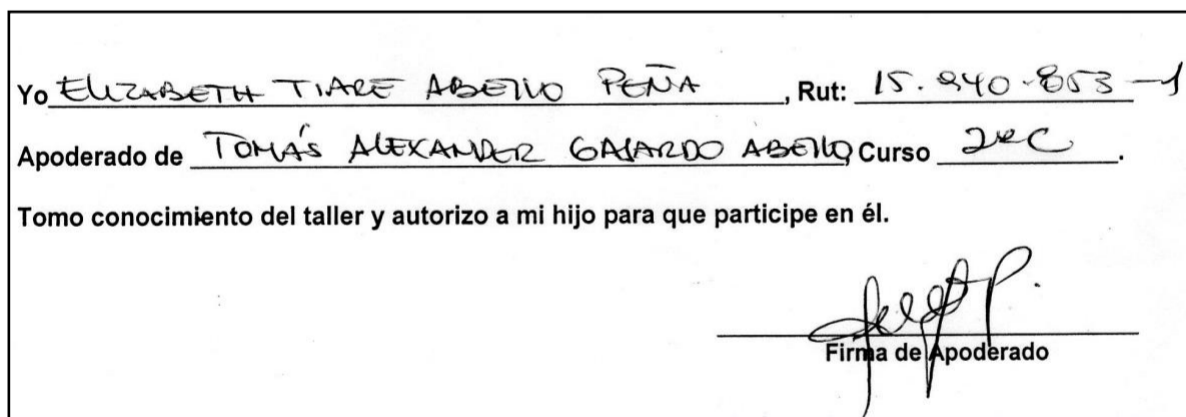 Yo ELIZABETH TIARE ABELLO PEÑA, Rut: 15.940.853-1
Apoderado de TOMÁS ALEXANDER GAJARDO ABELLO, Curso 2º C.
Tomo conocimiento del taller y autorizo a mi hijo para que participe en él.
Firma de Apoderado